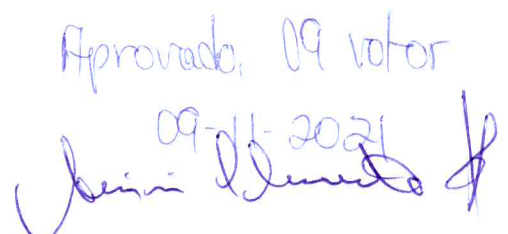 Aprovado. 09 votos
09-11-2021